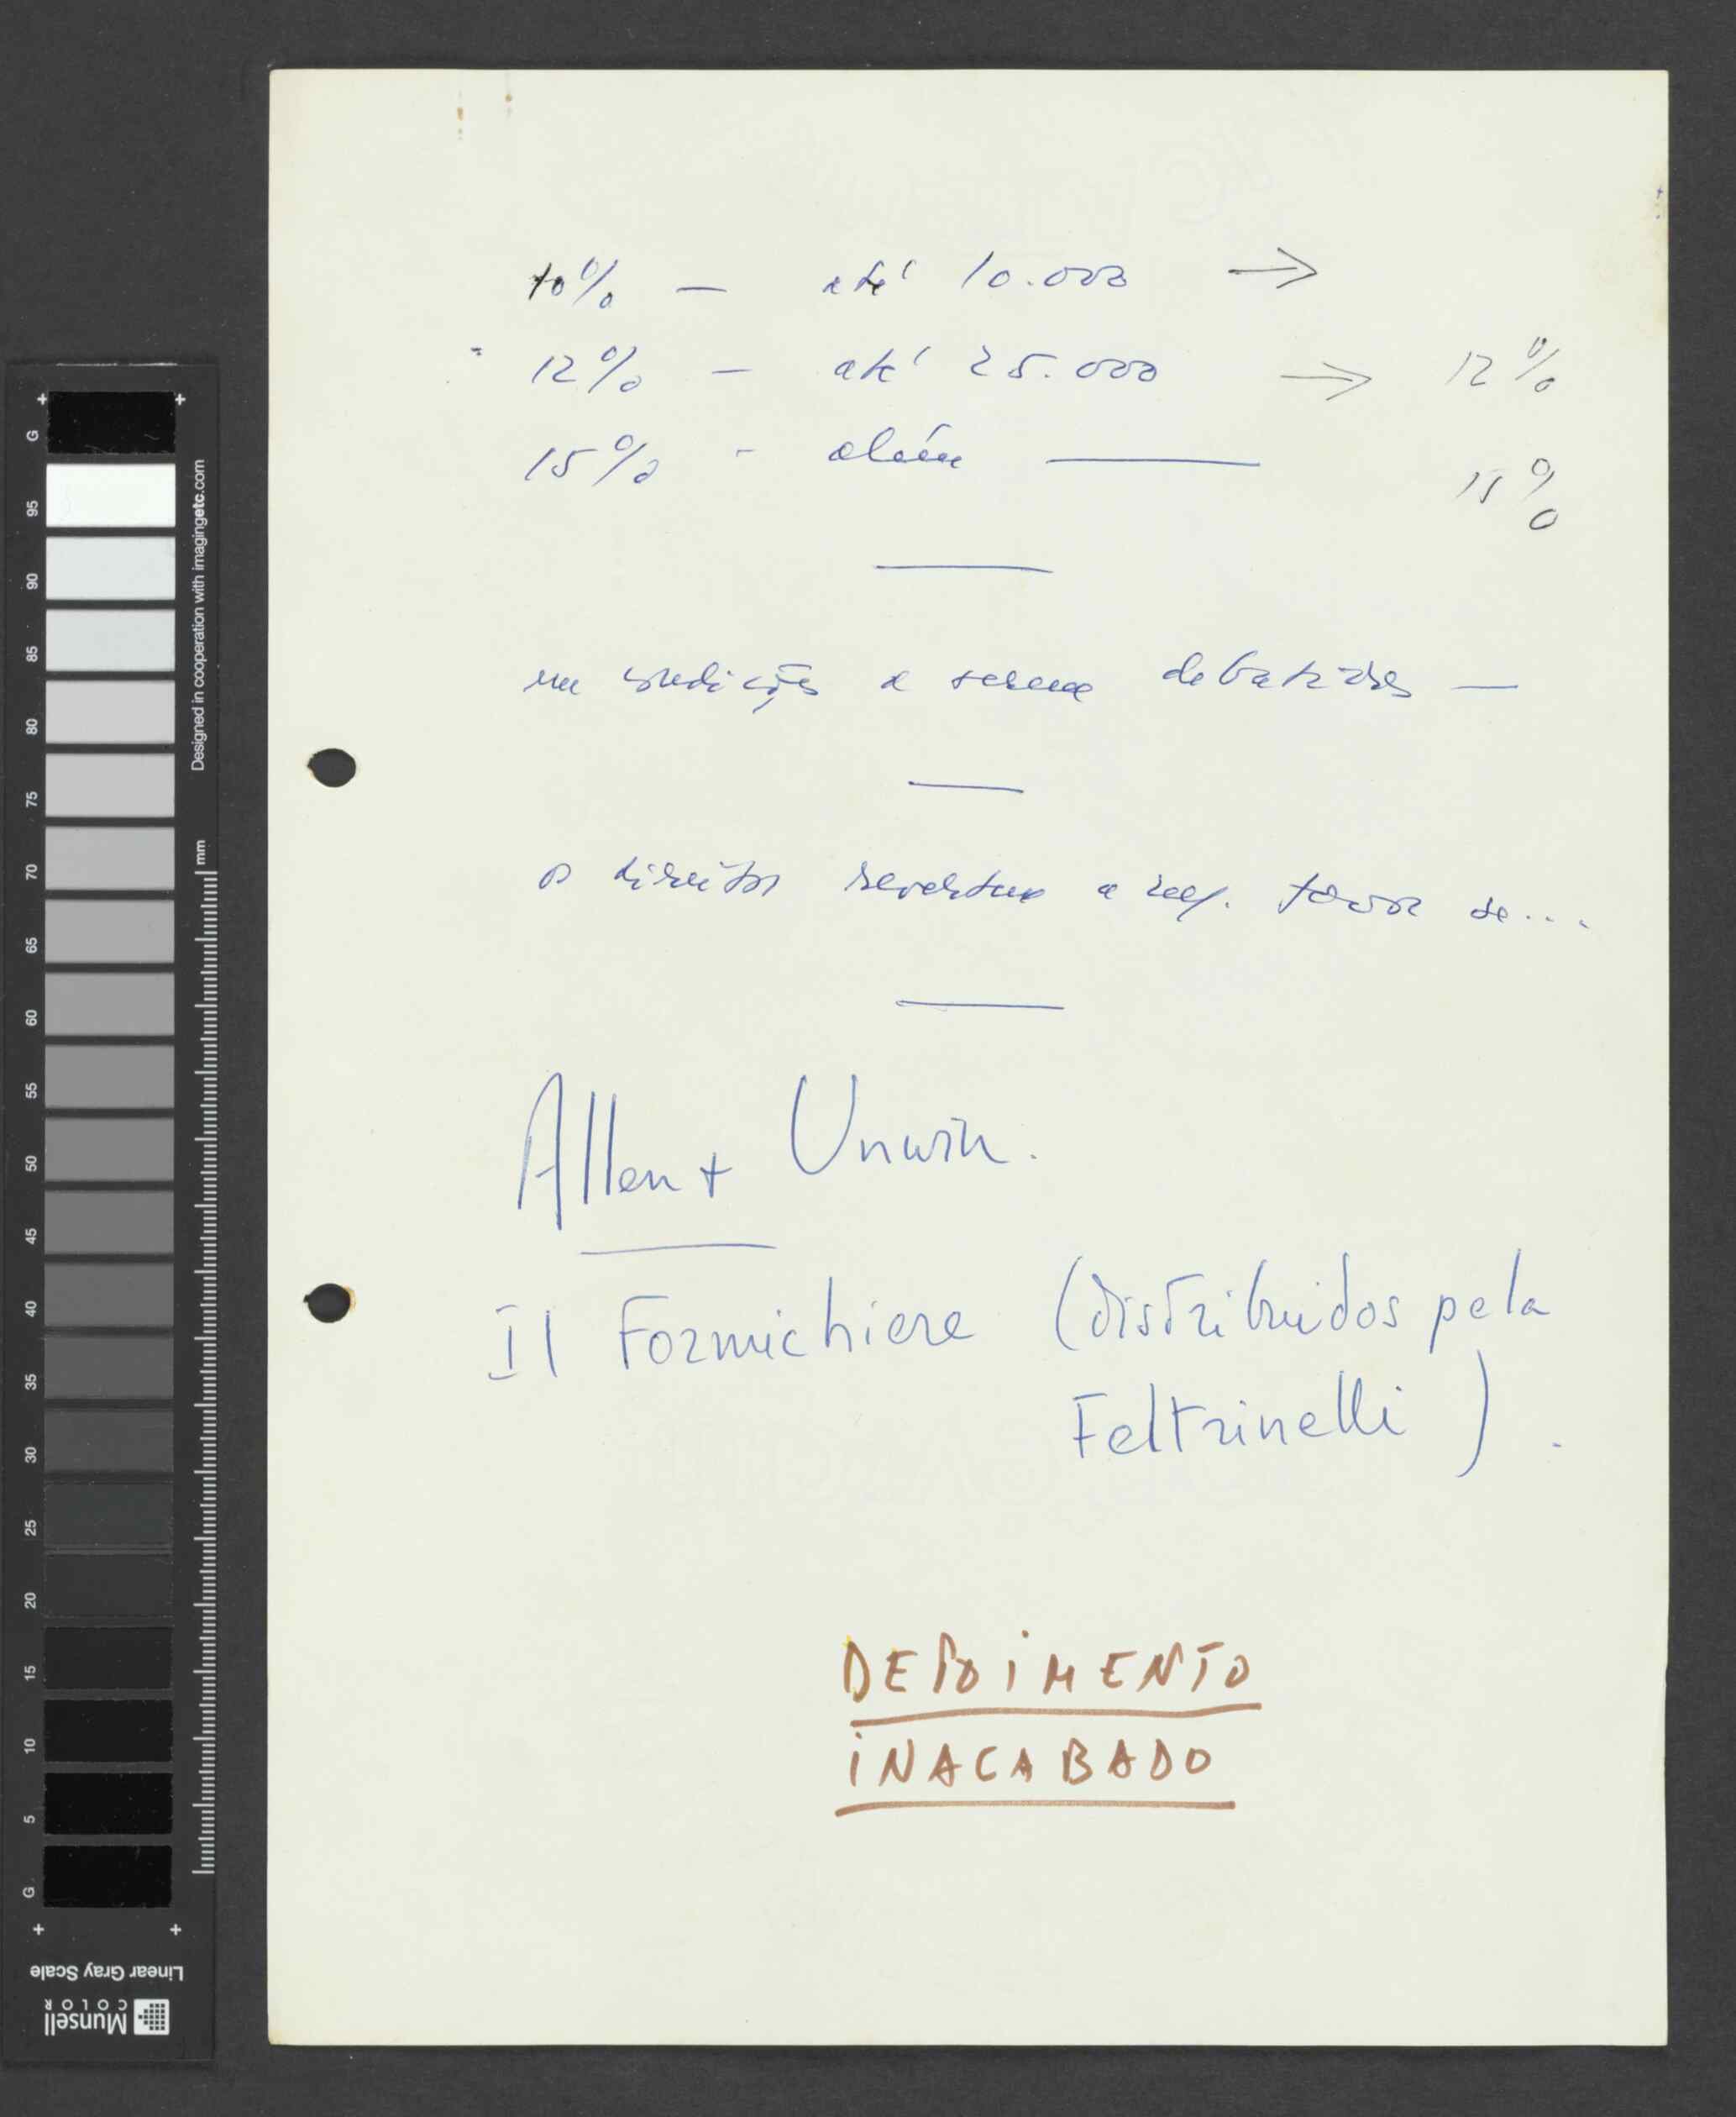 10% — até 10.000 →
12% — até 25.000 → 12%
15% - além —— 15%
condições a serem debatidas —
direitos revertem a favor se...
Allen + Unwin.
Il Formichiere (distribuidos pela
Feltrinelli).
DEPOIMENTO
INACABADO
G 95 90 85 80 75 70 65 60 55 50 45 40 35 30 25 20 15 10 5 G
Designed in cooperation with imagingetc.com
mm
Linear Gray Scale
Munsell
COLOR